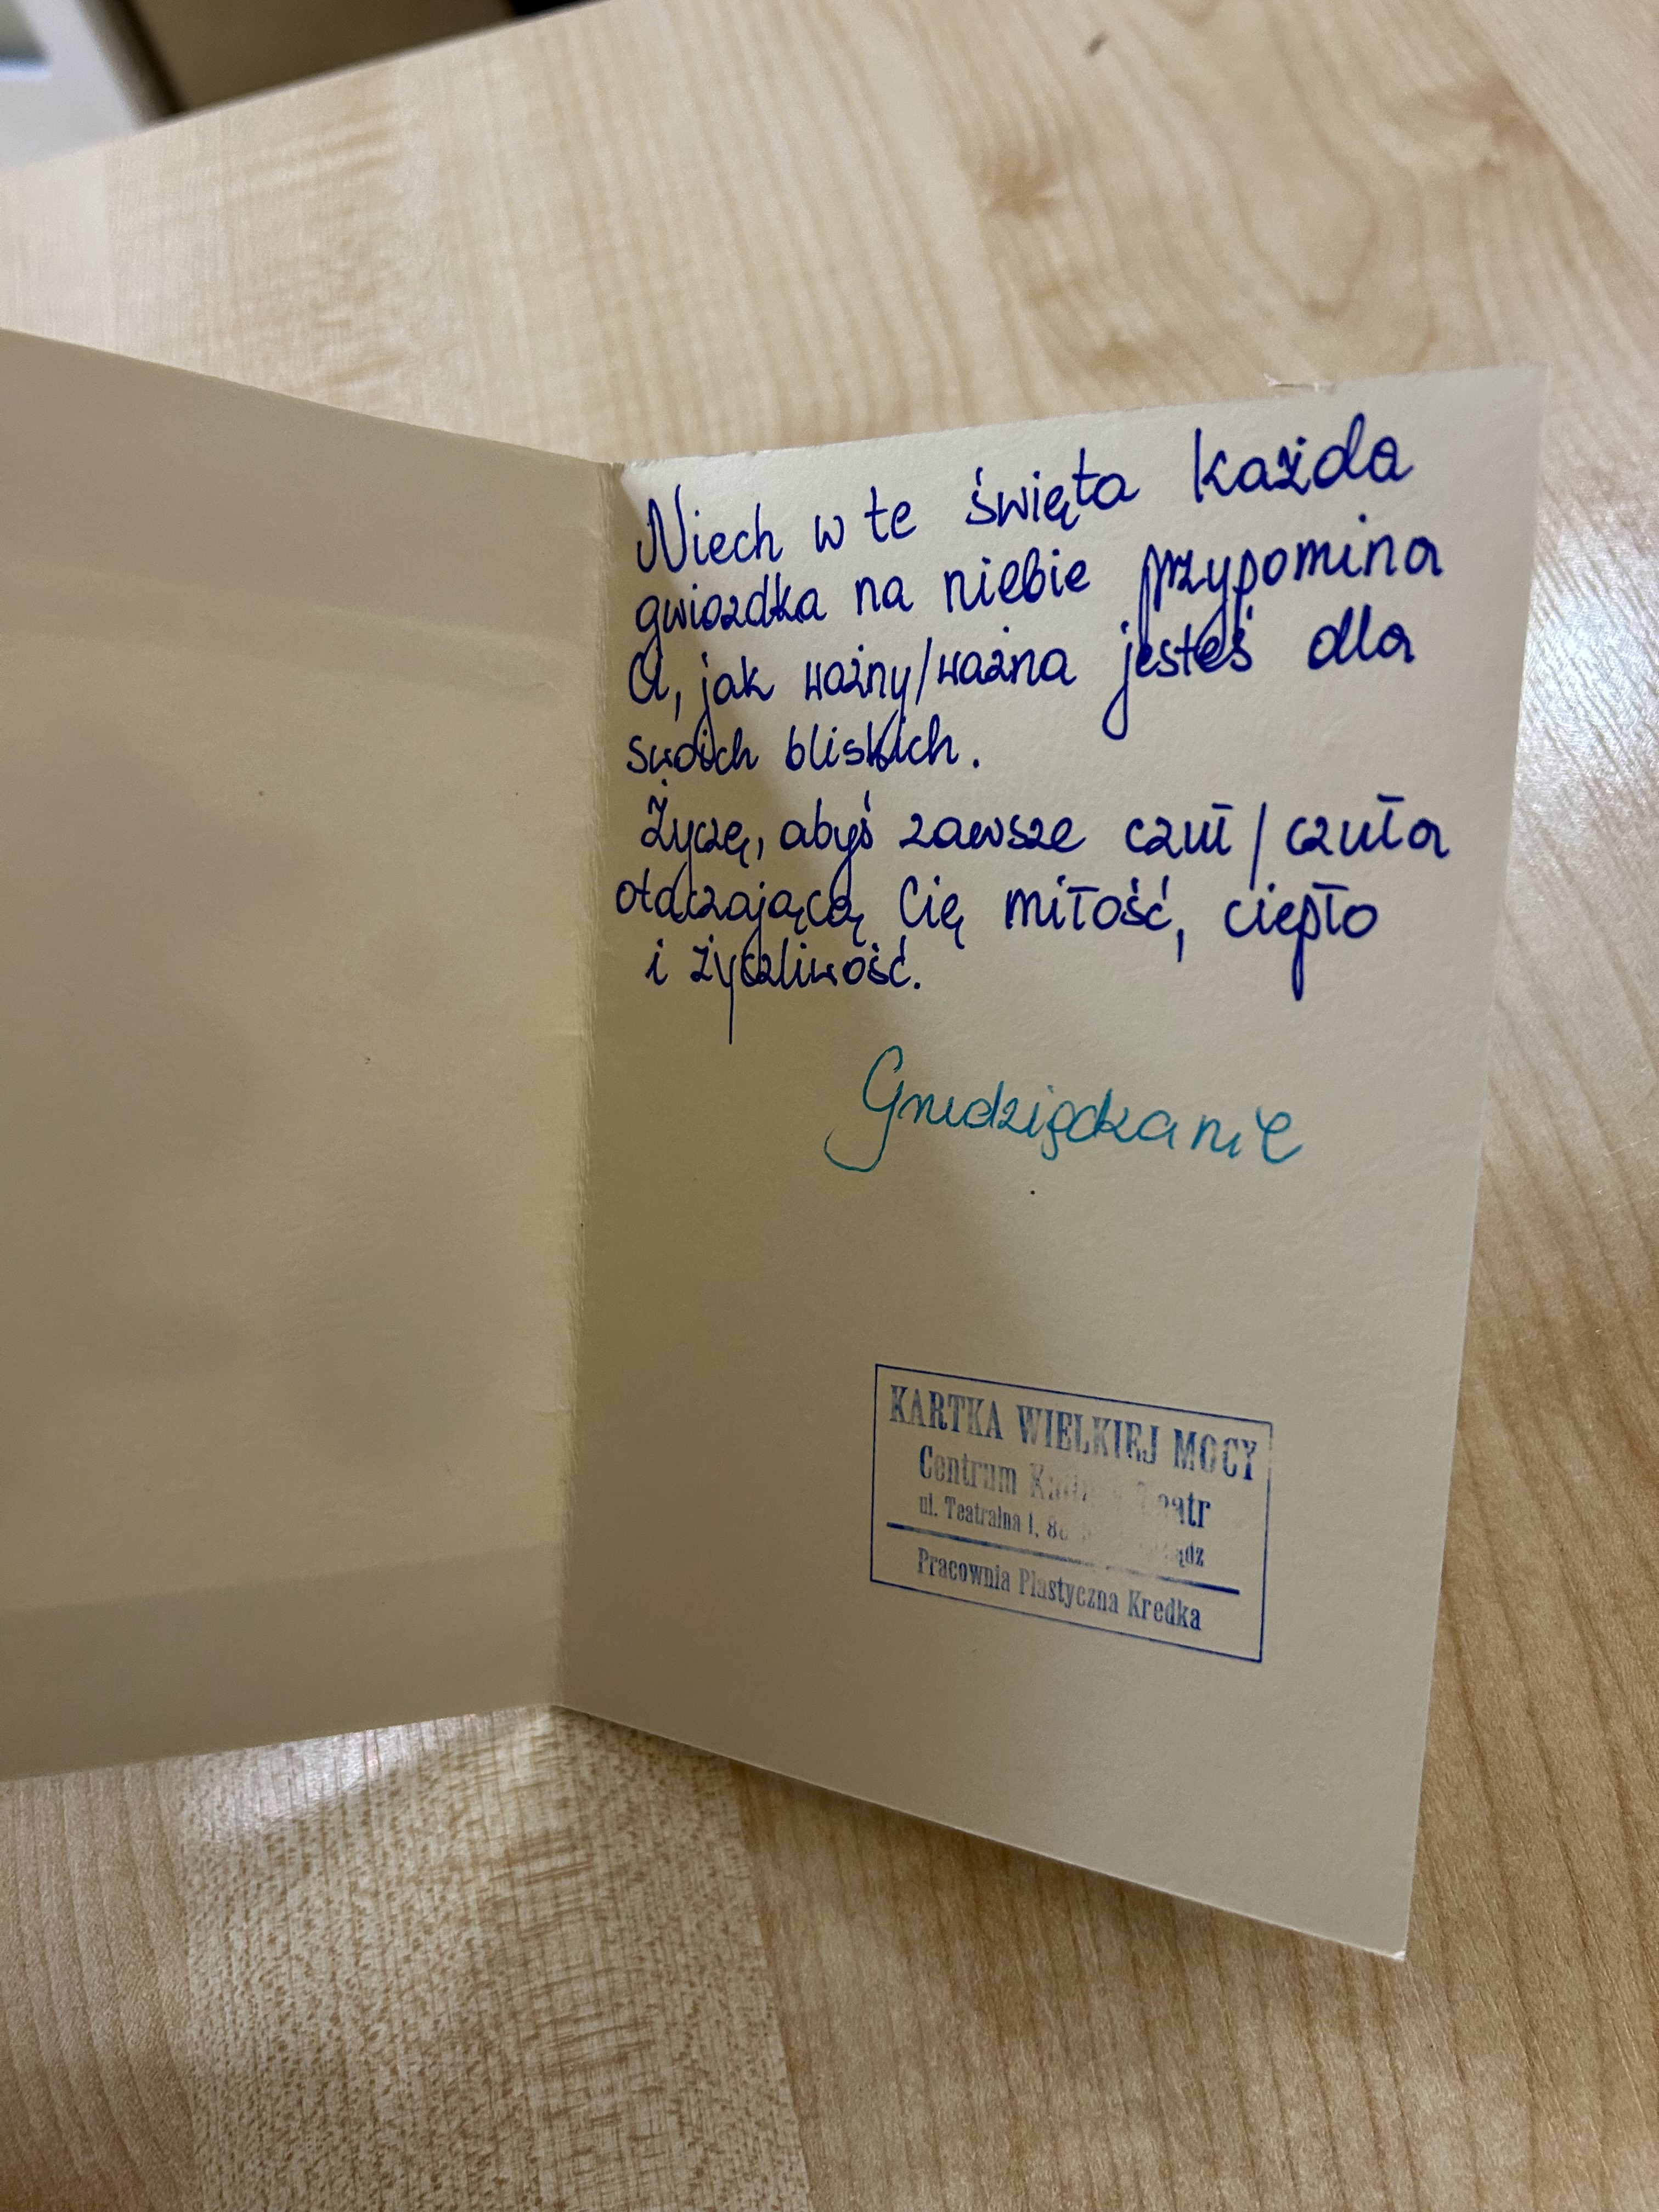 Niech w te święta każda
gwiazdka na niebie przypomina
Ci, jak ważny/ważna jesteś dla
swoich bliskich.
Życzę, abyś zawsze czuł/czuła
otaczającą Cię miłość, ciepło
i życzliwość.
Grudziądzanie
KARTKA WIELKIEJ MOCY
Centrum
ul. Teatralna 1,
Pracownia Plastyczna Kredka